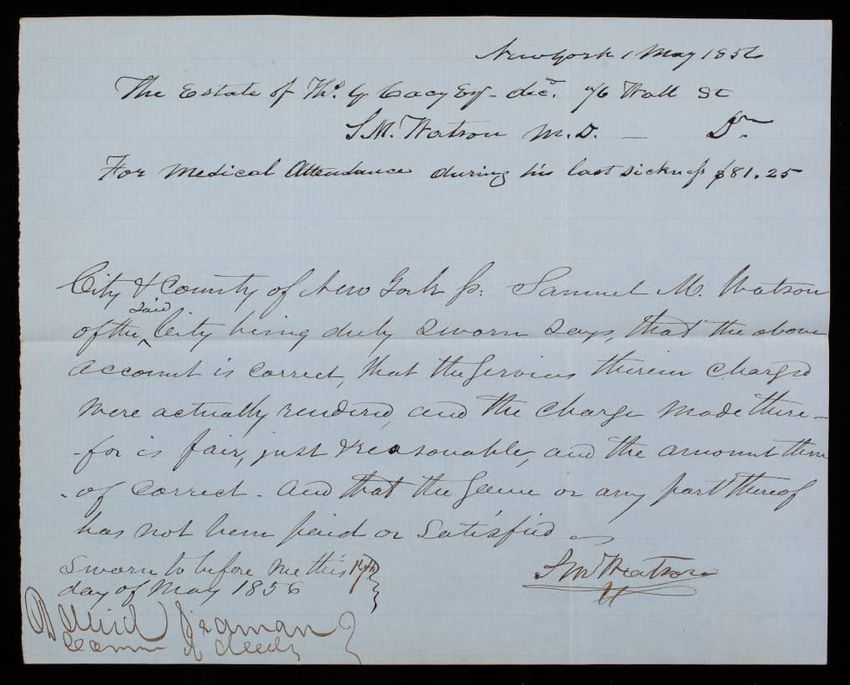 New York 1 May 1856
The Estate of Tho. G Cary Esq - decd. 96 Wall St
S.M. Watson M.D. — Dr
For Medical Attendance during his last sickness $81.25
City & County of New York ss: Samuel M. Watson
of the said City being duly sworn says, that the above
account is correct, that the services therein charged
were actually rendered, and the charge made there-
-for is fair, just & reasonable, and the amount there
-of correct - and that the same or any part thereof
has not been paid or satisfied
Sworn to before me this 17th
day of May 1856
S M Watson
David Seaman
Comm of deeds